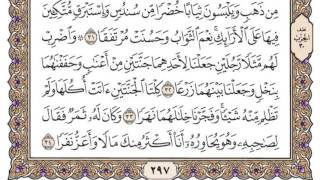 مِّن ذَهَبٍ وَيَلْبَسُونَ ثِيَابًا خُضْرًا مِّن سُندُسٍ وَإِسْتَبْرَقٍ مُّتَّكِـِٔينَ
فِيهَا عَلَى ٱلْأَرَآئِكِ نِعْمَ ٱلثَّوَابُ وَحَسُنَتْ مُرْتَفَقًا ٣١ ۞ وَٱضْرِبْ
لَهُم مَّثَلًا رَّجُلَيْنِ جَعَلْنَا لِأَحَدِهِمَا جَنَّتَيْنِ مِنْ أَعْنَٰبٍ وَحَفَفْنَٰهُمَا
بِنَخْلٍ وَجَعَلْنَا بَيْنَهُمَا زَرْعًا ٣٢ كِلْتَا ٱلْجَنَّتَيْنِ ءَاتَتْ أُكُلَهَا وَلَمْ
تَظْلِم مِّنْهُ شَيْـًٔا وَفَجَّرْنَا خِلَٰلَهُمَا نَهَرًا ٣٣ وَكَانَ لَهُۥ ثَمَرٌ فَقَالَ
لِصَٰحِبِهِۦ وَهُوَ يُحَاوِرُهُۥٓ أَنَا۠ أَكْثَرُ مِنكَ مَالًا وَأَعَزُّ نَفَرًا ٣٤
٢٩٧
نصف
الحزب
٣٠